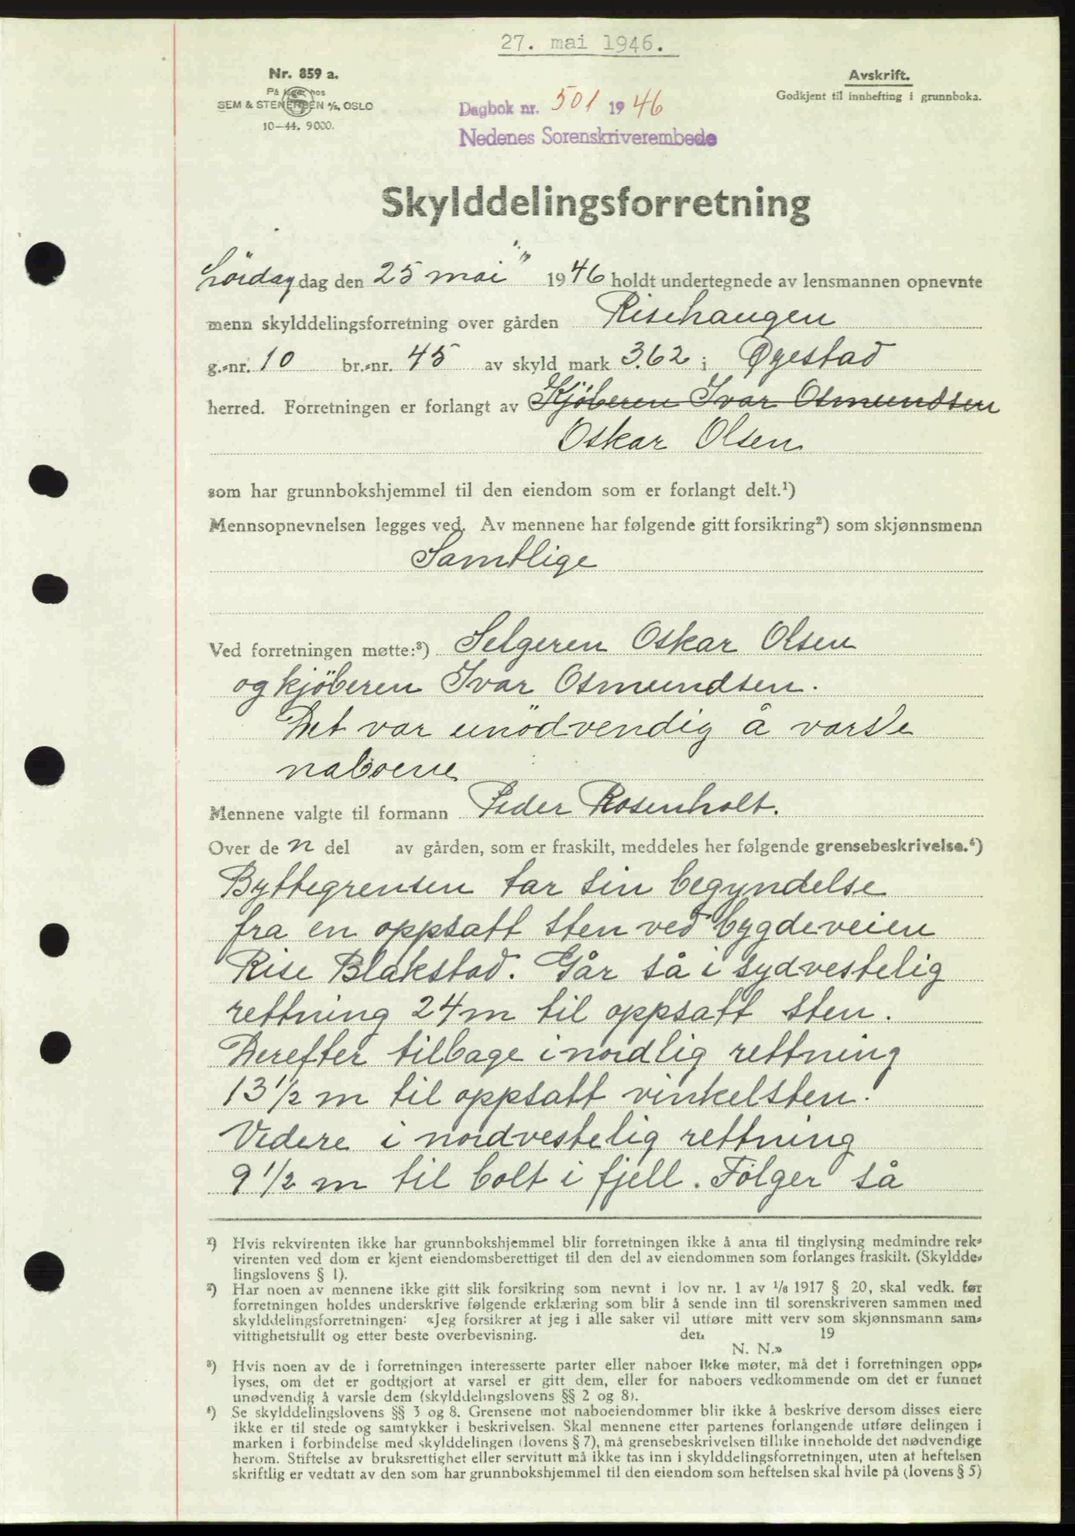 27. mai 1946.
Nr. 859 a.
På lager hos
SEM & STENERSEN A/S, OSLO
10-44. 9000.
Dagbok nr. 501 1946
Nedenes Sorenskriverembede
Avskrift.
Godkjent til innhefting i grunnboka.
Skylddelingsforretning
Lördag dag den 25 mai 1946 holdt undertegnede av lensmannen opnevnte
menn skylddelingsforretning over gården Risehaugen
g.-nr. 10 br.-nr. 45 av skyld mark 3.62 i Øyestad
herred. Forretningen er forlangt av Kjöberen Ivar Osmundsen
Oskar Olsen
som har grunnbokshjemmel til den eiendom som er forlangt delt.¹)
Mennsopnevnelsen legges ved. Av mennene har følgende gitt forsikring²) som skjønnsmenn
Samtlige
Ved forretningen møtte:³) Selgeren Oskar Olsen
og kjöberen Ivar Osmundsen.
Det var unödvendig å varsle
naboene
Mennene valgte til formann Peder Rosenholt.
Over de n del av gården, som er fraskilt, meddeles her følgende grensebeskrivelse.⁴)
Byttegrensen tar sin begyndelse
fra en oppsatt sten ved bygdeveien
Rise Blakstad. Går så i sydvestelig
rettning 24 m til oppsatt sten.
Derefter tilbage i nordlig rettning
13 1/2 m til oppsatt vinkelsten.
Videre i nordvestelig rettning
9 1/2 m til bolt i fjell. Fölger så
¹) Hvis rekvirenten ikke har grunnbokshjemmel blir forretningen ikke å anta til tinglysing medmindre rek-
virenten ved dom er kjent eiendomsberettiget til den del av eiendommen som forlanges fraskilt. (Skyldde-
lingslovens § 1).
²) Har noen av mennene ikke gitt slik forsikring som nevnt i lov nr. 1 av 1/8 1917 § 20, skal vedk. før
forretningen holdes underskrive følgende erklæring som blir å sende inn til sorenskriveren sammen med
skylddelingsforretningen: «Jeg forsikrer at jeg i alle saker vil utføre mitt verv som skjønnsmann sam-
vittighetsfullt og etter beste overbevisning. den 19
N. N.»
³) Hvis noen av de i forretningen interesserte parter eller naboer ikke møter, må det i forretningen opp-
lyses, om det er godtgjort at varsel er gitt dem, eller for naboers vedkommende om det er funnet
unødvendig å varsle dem (skylddelingslovens §§ 2 og 8).
⁴) Se skylddelingslovens §§ 3 og 8. Grensene mot naboeiendommer blir ikke å beskrive dersom disses eiere
ikke er til stede og samtykker i beskrivelsen. Skal mennene etter partenes forlangende utføre delingen i
marken i forbindelse med skylddelingen (lovens § 7), må grensebeskrivelsen tillike inneholde det nødvendige
herom. Stiftelse av bruksrettighet eller servitutt må ikke tas inn i skylddelingsforretningen, uten at heftelsen
skriftlig er vedtatt av den som har grunnbokshjemmel til den eiendom som heftelsen skal hvile på (lovens § 5)